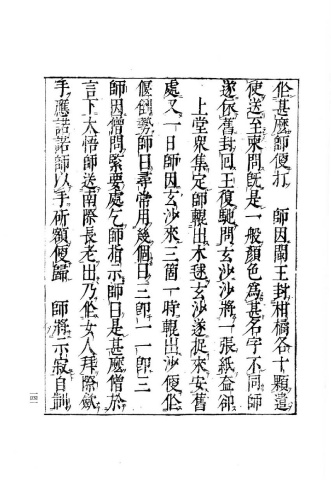 作甚麼師便打　師因閩王封柑橘各十顆遣
使送至柬問旣是一般顏色爲甚名字不同師
遂依舊封回王復馳問玄沙沙將一張紙葢卻
上堂衆集定師輥出木毬玄沙遂捉來安舊
處又一日師因玄沙來三箇一時輥出沙便作
偃倒勢師曰尋常用幾個曰三卽一一卽三
師因僧問緊要處乞師指示師曰是甚麼僧於
言下大悟師送南際長老出乃作女人拜際斂
手應諾諾師以手斫額便歸　師將示寂自製